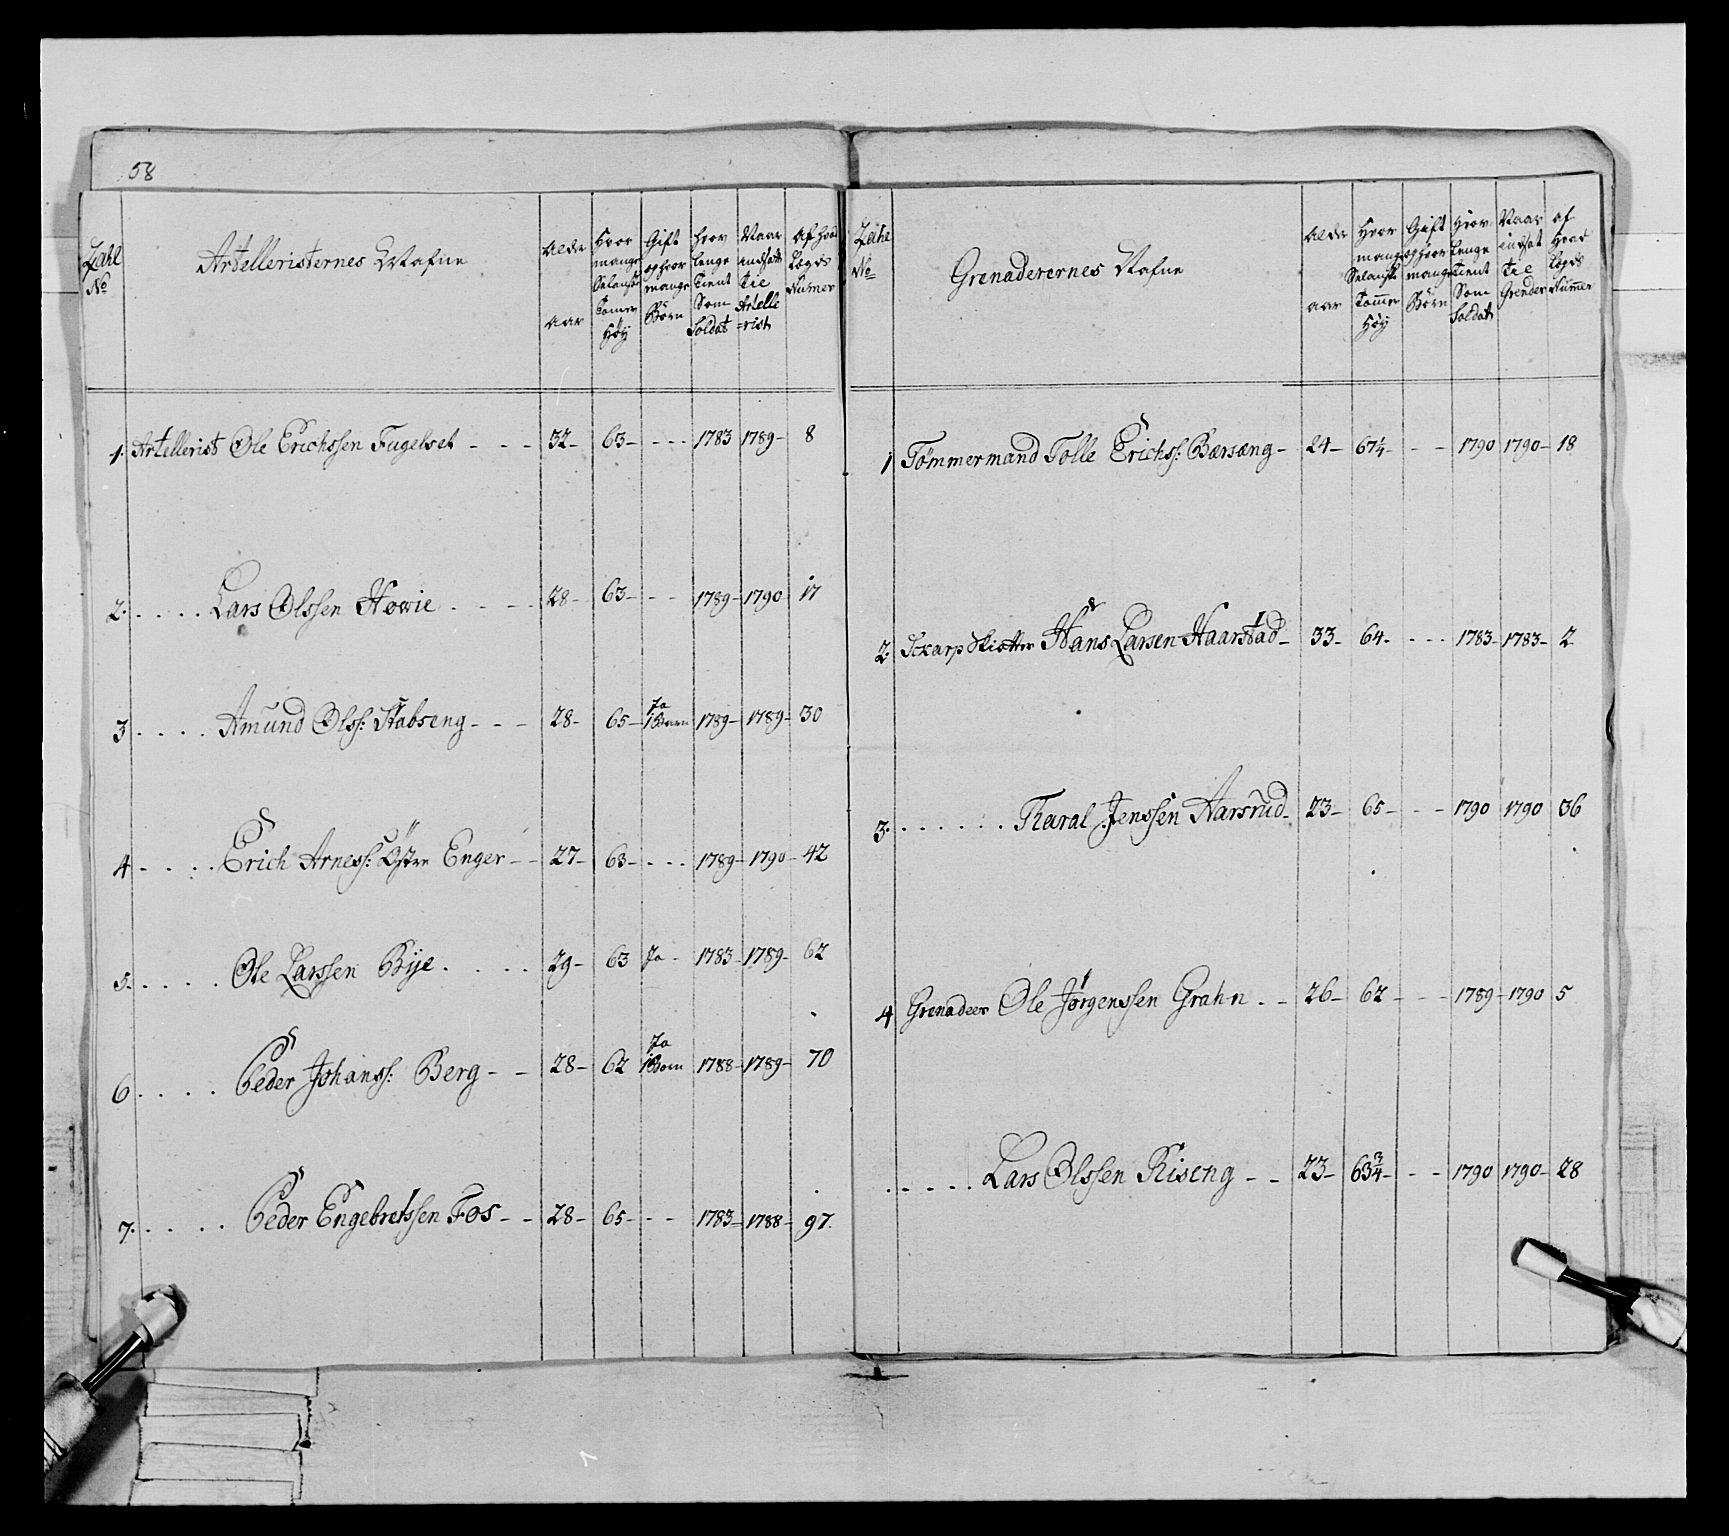 58
Zahl No
Artelleristernes Nafne
Alder aar
Hvor mange Selansk Tomer Høy
Gift og hvor mange Børn
hvor lenge tient Som Soldat
Naar indsatt tie Artelle=rist
Af hvad Legds Numer
1. Artellerist Ole Erichssen Fugelset - - - 32- 63- - - - 1783 1789- 8
2. . . . . Lars Olssen Howie . - - - 28- 63- - - 1789- 1790 17
3 . . . . Amund Olss: Stabseng - - - 28- 65- Ja 1 Barn 1789- 1789- 30
4 - . . . Erich Arness: Østre Enger - - 27- 63- - - - 1789- 1790- 42
5. . . . . Ole Larssen Bije . . . . 29- 63 Ja - 1783- 1789- 62
6 . . . . Peder Johanss: Berg - - 28- 62 Ja 1 Barn 1788- 1789- 70
7. . . . . Peder Engebretssen Fos - - 28- 65- - - 1783- 1788- 97.
Zahl No
Grenaderernes Nafne
Alder aar
Hvor mange Selansk Tomer Høy
Gift og hvor mange Børn
Hvor lenge tient Som Soldat
Naar indsat tie Grender
af Hvad Legds Numer
1 Tömmermand Tolle Erichss: Bærsæng - 24- 67 1/4- - - 1790 1790- 18
2. Sckarp Skiotter Hans Larsen Haarstad - 33- 64- - - - 1783- 1783- 2
3. . . . . . . Taral Jenssen Aarsrud - 23- 65- - - 1790 1790 36
4 Grenadeer Ole Jørgenssen Grahn . - 26- 62- - - 1789- 1790 5
. . . . . Lars Olssen Riseng - - 23- 63 3/4- - - 1790 1790- 28